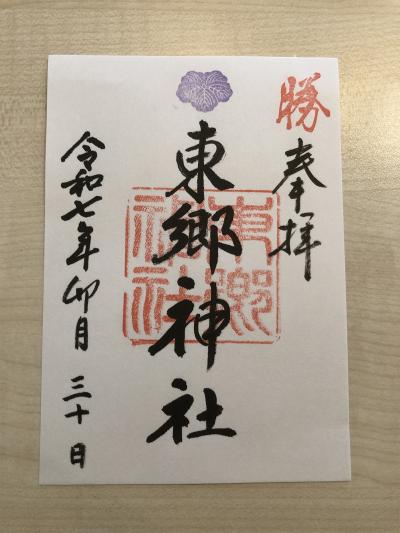 勝
奉拝
東郷神社
東郷神社
令和七年卯月三十日